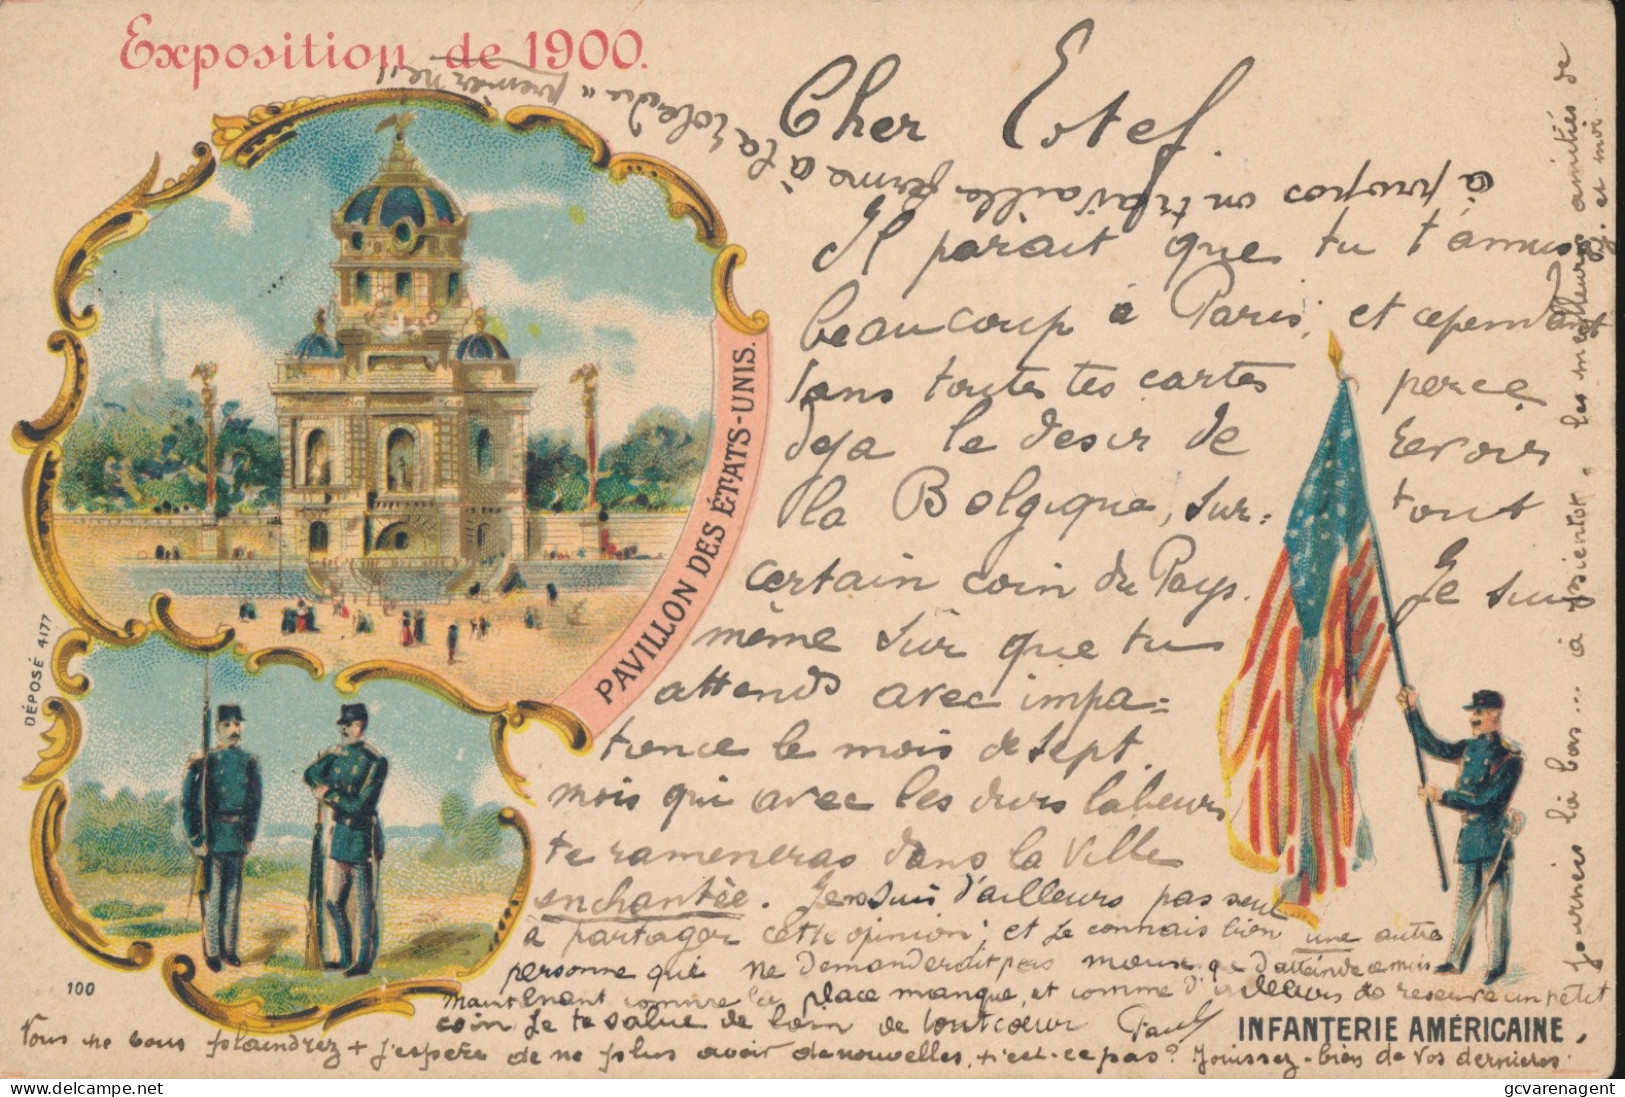 Exposition de 1900.
Cher Estef.
à propos on travaille ferme à la "premier né"
Il parait que tu t'amuses
beaucoup à Paris, et cependant
dans toutes tes cartes perce
deja le desir de revoir
la Belgique, sur= tout
certain coin du Pays. Je suis
même sûr que tu
attends avec impa=
tience le mois de sept.
mois qui avec les durs labeurs
te ramèneras dans la Ville
enchantée. Je ne suis d'ailleurs pas seul
à partager cette opinion; et je connais bien une autre
personne qui ne demanderait pas mieux que d'atteindre ce mois
maintenant comme la place manque, et comme d'ailleurs
coin je te salue de loin de tout coeur Paul
Vous ne vous plaindrez + j'espère de ne plus avoir de nouvelles, n'est-ce pas? Jouissez-bien de vos dernières
journées là bas... à bientot. les meilleures amitiés de
et moi
PAVILLON DES ÉTATS-UNIS.
DÉPOSÉ 4177
100
INFANTERIE AMÉRICAINE.
gcvarenagent